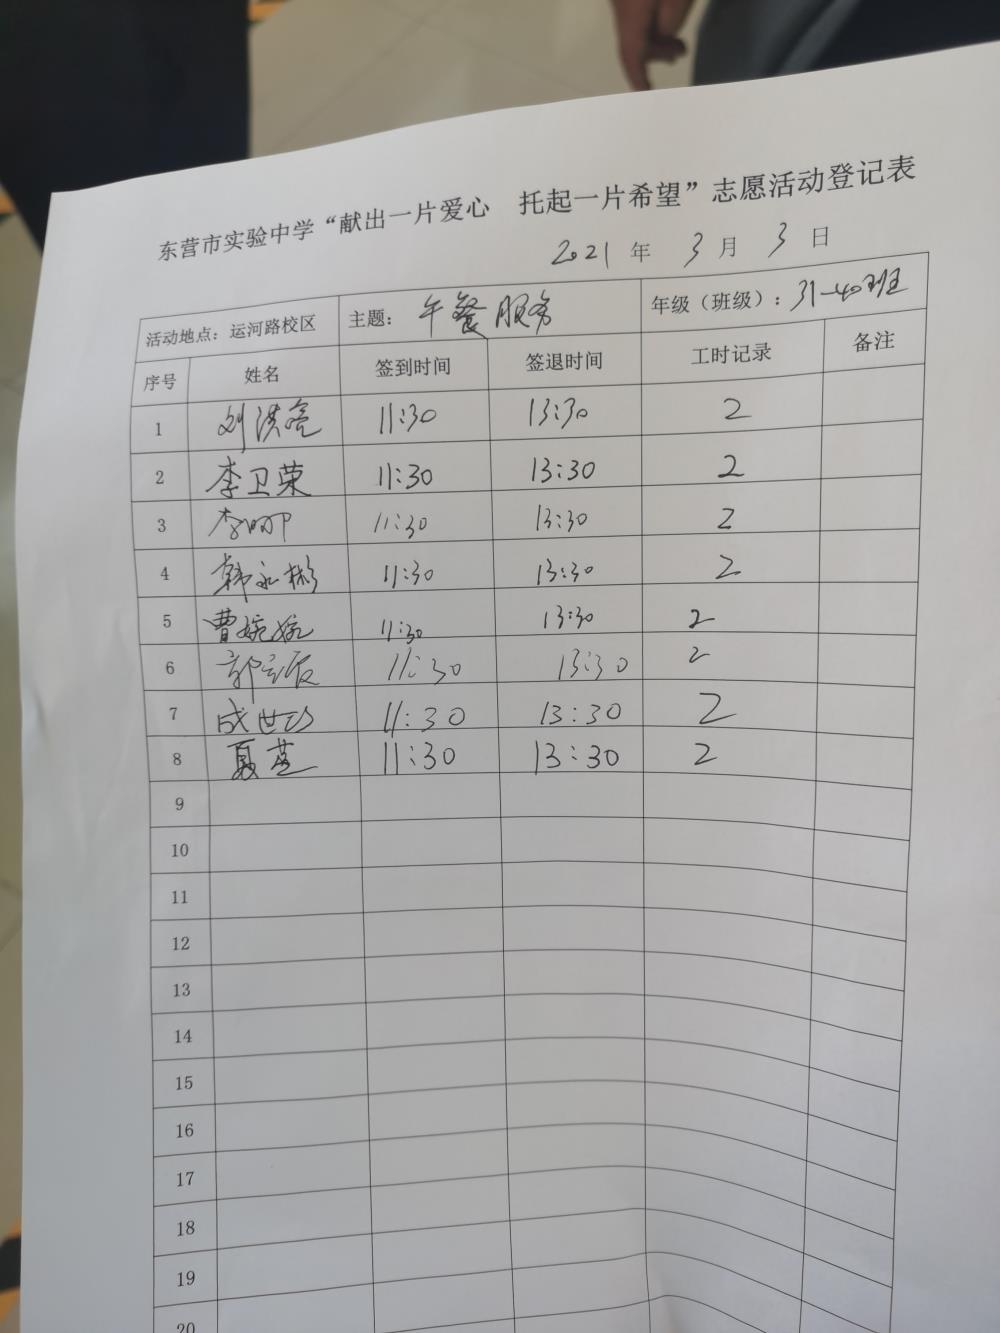 东营市实验中学“献出一片爱心 托起一片希望”志愿活动登记表
2021 年 3 月 3 日
活动地点：运河路校区 主题：午餐服务 年级（班级）：31-40班
序号 姓名 签到时间 签退时间 工时记录 备注
1 刘洪亮 11:30 13:30 2
2 李卫荣 11:30 13:30 2
3 李 11:30 13:30 2
4 韩永彬 11:30 13:30 2
5 曹婉婉 11:30 13:30 2
6 郭 11:30 13:30 2
7 成世功 11:30 13:30 2
8 夏燕 11:30 13:30 2
9
10
11
12
13
14
15
16
17
18
19
20